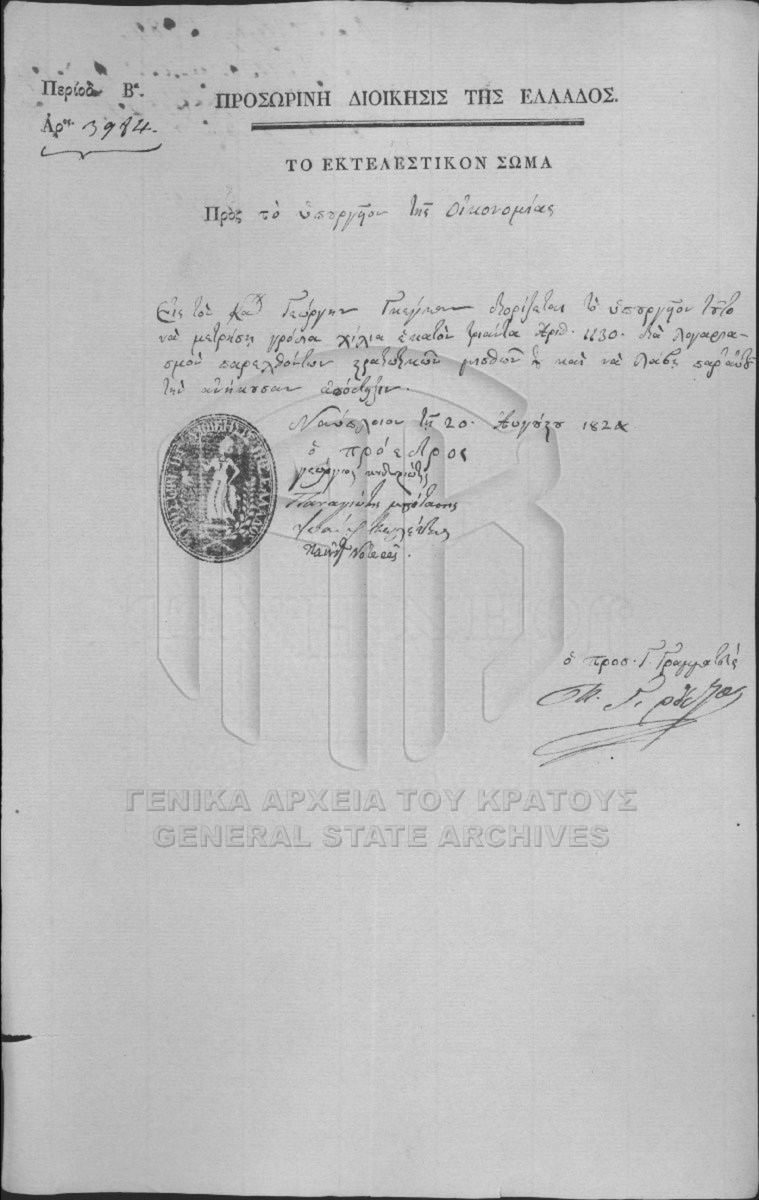 Περίοδ Βα.
ΠΡΟΣΩΡΙΝΗ ΔΙΟΙΚΗΣΙΣ ΤΗΣ ΕΛΛΑΔΟΣ.
Ἀρθ. 3984.
ΤΟ ΕΚΤΕΛΕΣΤΙΚΟΝ ΣΩΜΑ
Πρὸς τὸ ὑπουργεῖον τῆς Οἰκονομίας
Εἰς τὸν Γεώργιον διορίζεται τὸ ὑπουργεῖον τοῦτο
νὰ μετρήσῃ γρόσια χίλια ἑκατὸν τριάντα ἀριθ. 1130. διὰ λογαρια-
σμὸν παρελθόντων μισθῶν καὶ νὰ λάβῃ παρ' αὐτοῦ
τὴν ἀνήκουσαν ἀπόδειξιν.
Ναύπλιον τῇ 20. Αὐγούστου 1824
ὁ πρόεδρος
γεώργιος κουντουριώτης
Παναγιώτης μπότασης
Ἰωάννης Κωλέττης
Νοταρᾶς.
ὁ προσ. Γ. Γραμματεὺς
ΓΕΝΙΚΑ ΑΡΧΕΙΑ ΤΟΥ ΚΡΑΤΟΥΣ
GENERAL STATE ARCHIVES